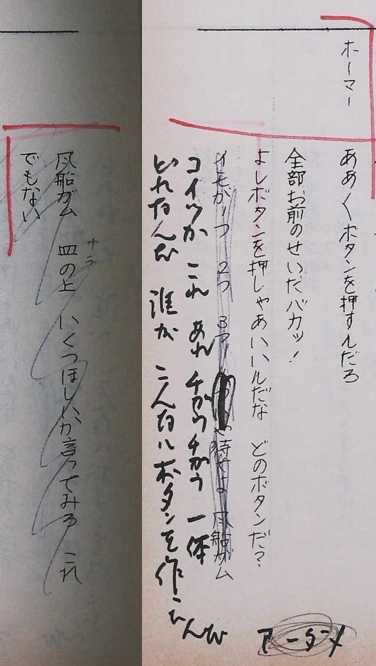 ホーマー ああくボタンを押すんだろ
全部お前のせいだバカッ!
よしボタンを押しゃあいいんだな どのボタンだ?
イモが1つ 2つ 3つ 待てよ 風船ガム
コイツか これ あれ チがウチがう 一体
どれなんだ 誰が こんなにボタンを作ったんだ
風船ガム 皿の上 いくつほしいか言ってみろ これ
でもない